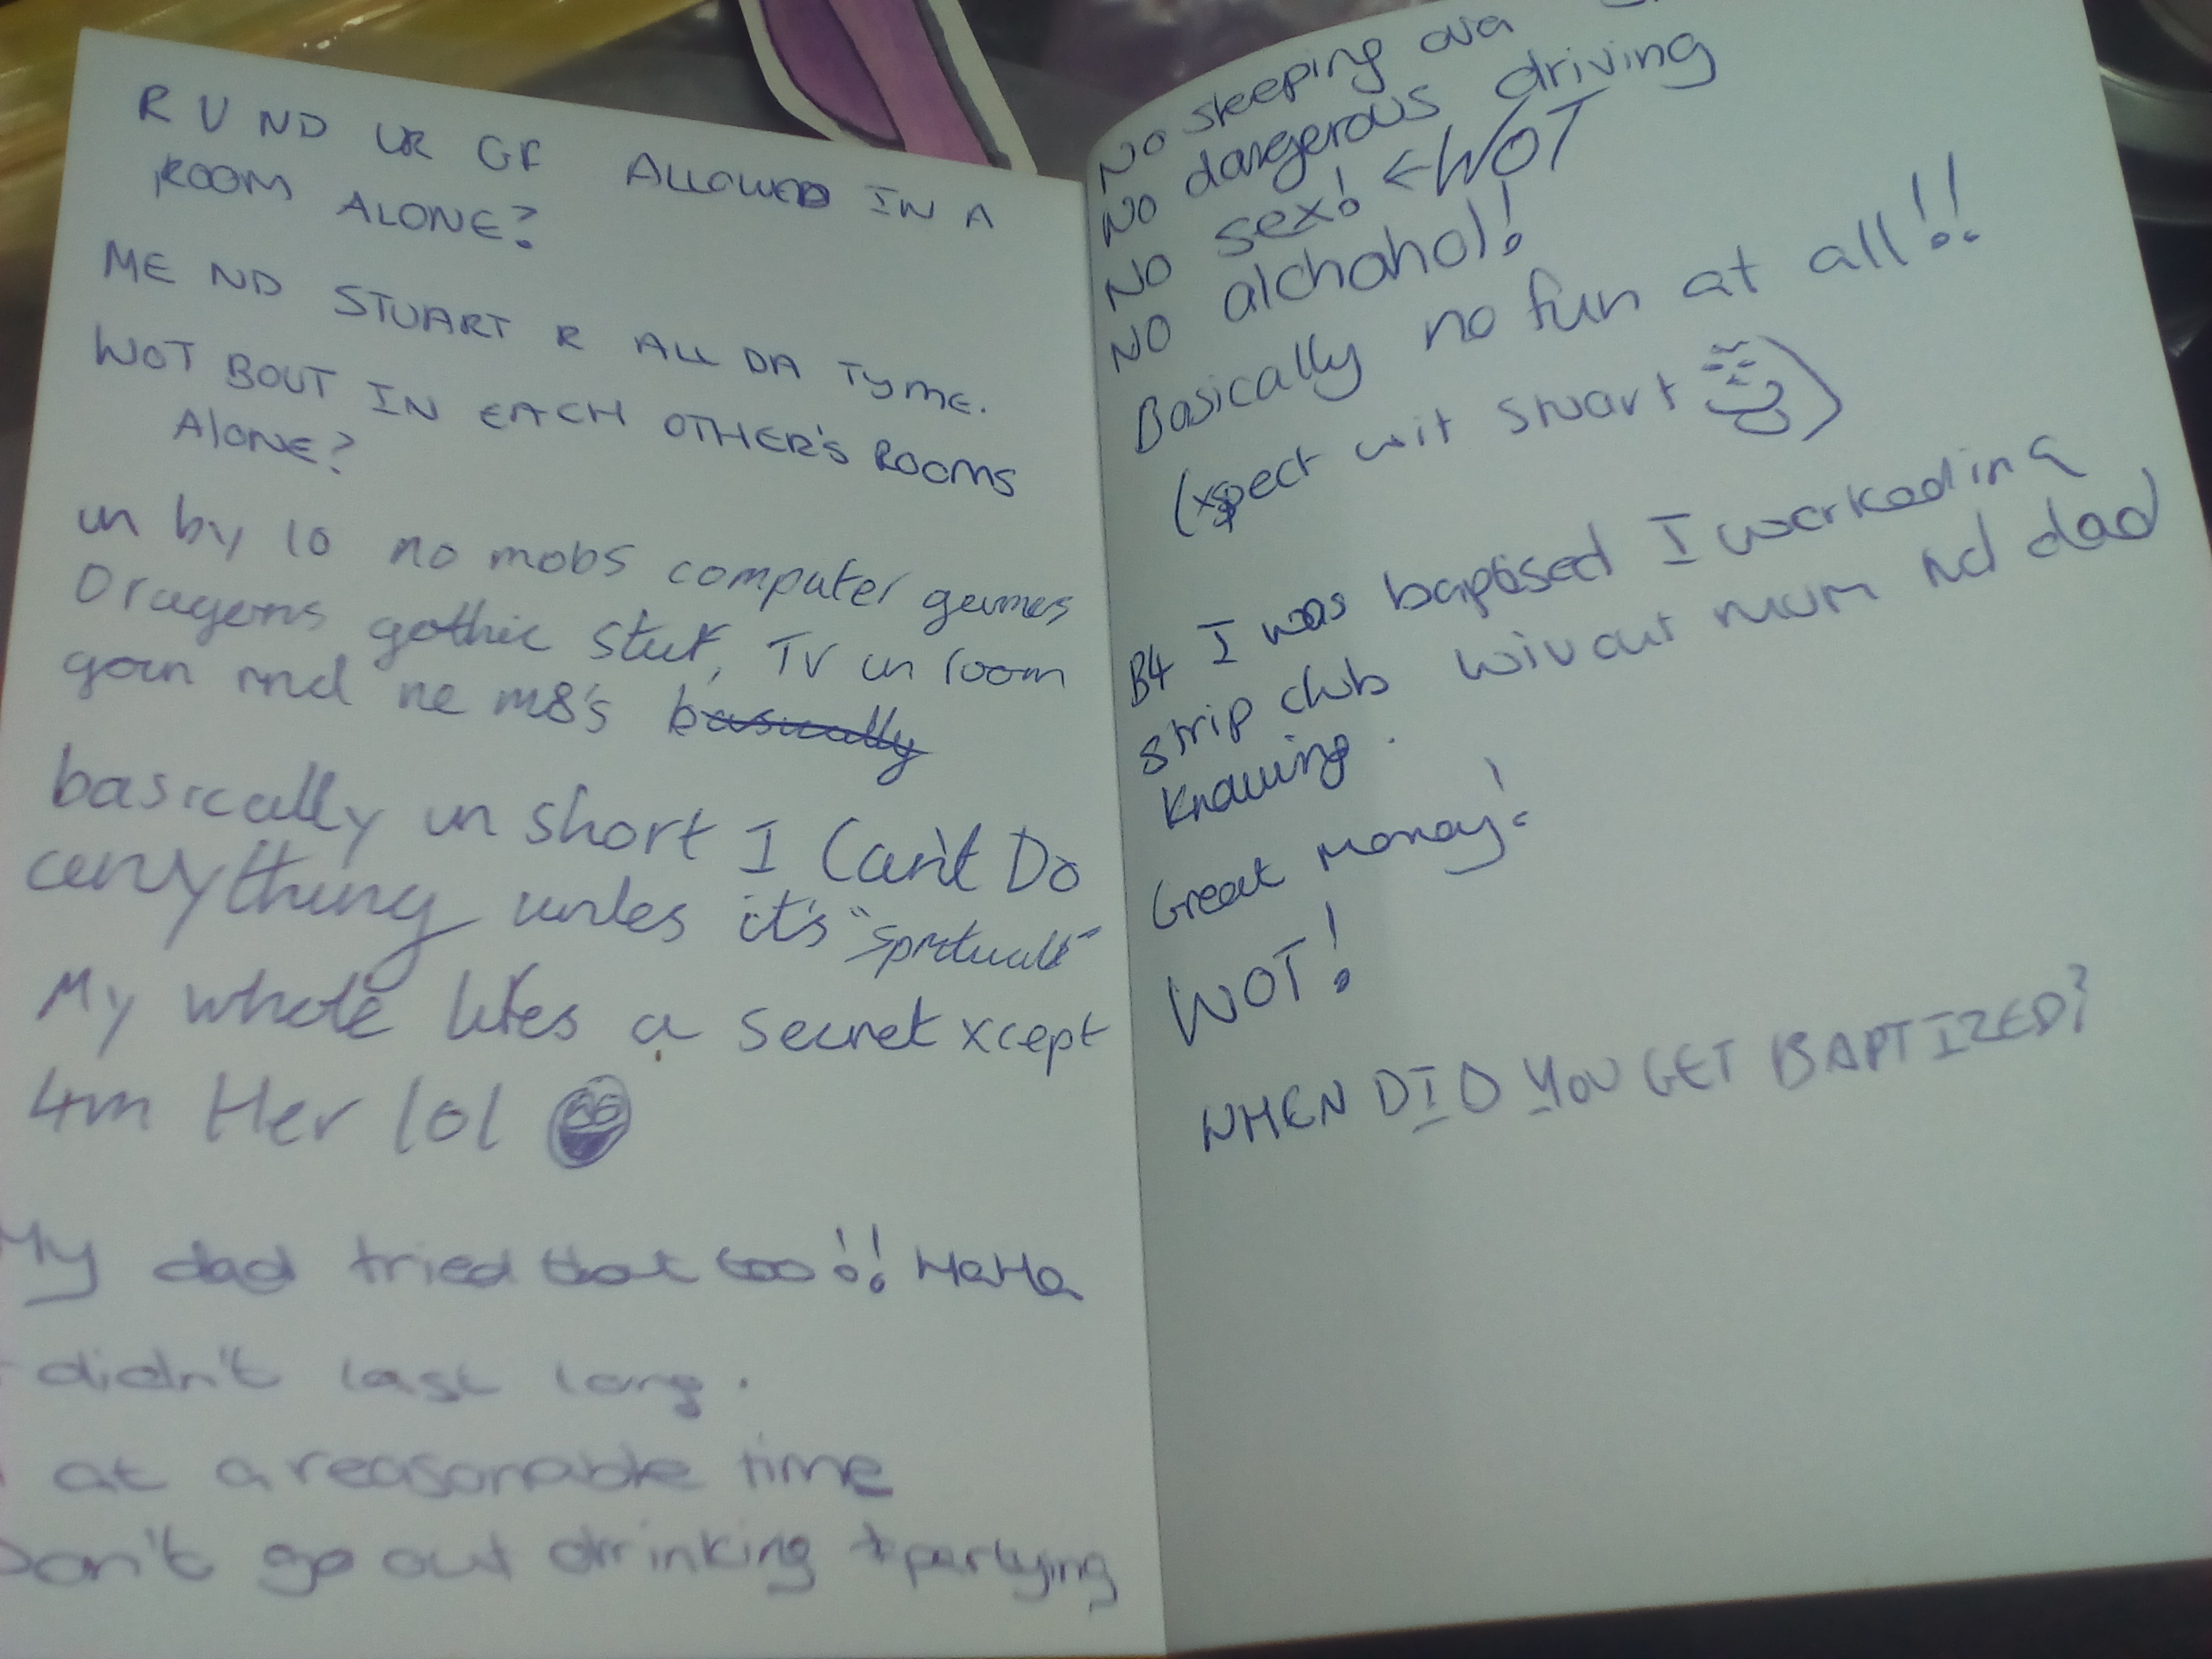 R U ND UR GF ALLOWED IN A
ROOM ALONE?
ME ND STUART R ALL DA TYME.
WOT BOUT IN EACH OTHER'S ROOMS
AlONE?
in by 10 no mobs computer games
Dragons gothic stuf, TV in room
goin rnd ne m8's basically
basically in short I Can't Do
anything unles it's
My whole lifes a secret xcept
4m Her lol
My dad tried that too!! HaHa
didn't last long.
at a reasonable time
Don't go out drinking + partying
No sleeping ova
No dangerous driving
No sex! ← WOT
No alchohol!
Basically no fun at all!!
(xpect wit stuart )
B4 I was baptised I worked in a
strip club wivout mum nd dad
knowing.
Great money!
WOT!
WHEN DID YOU GET BAPTIZED?